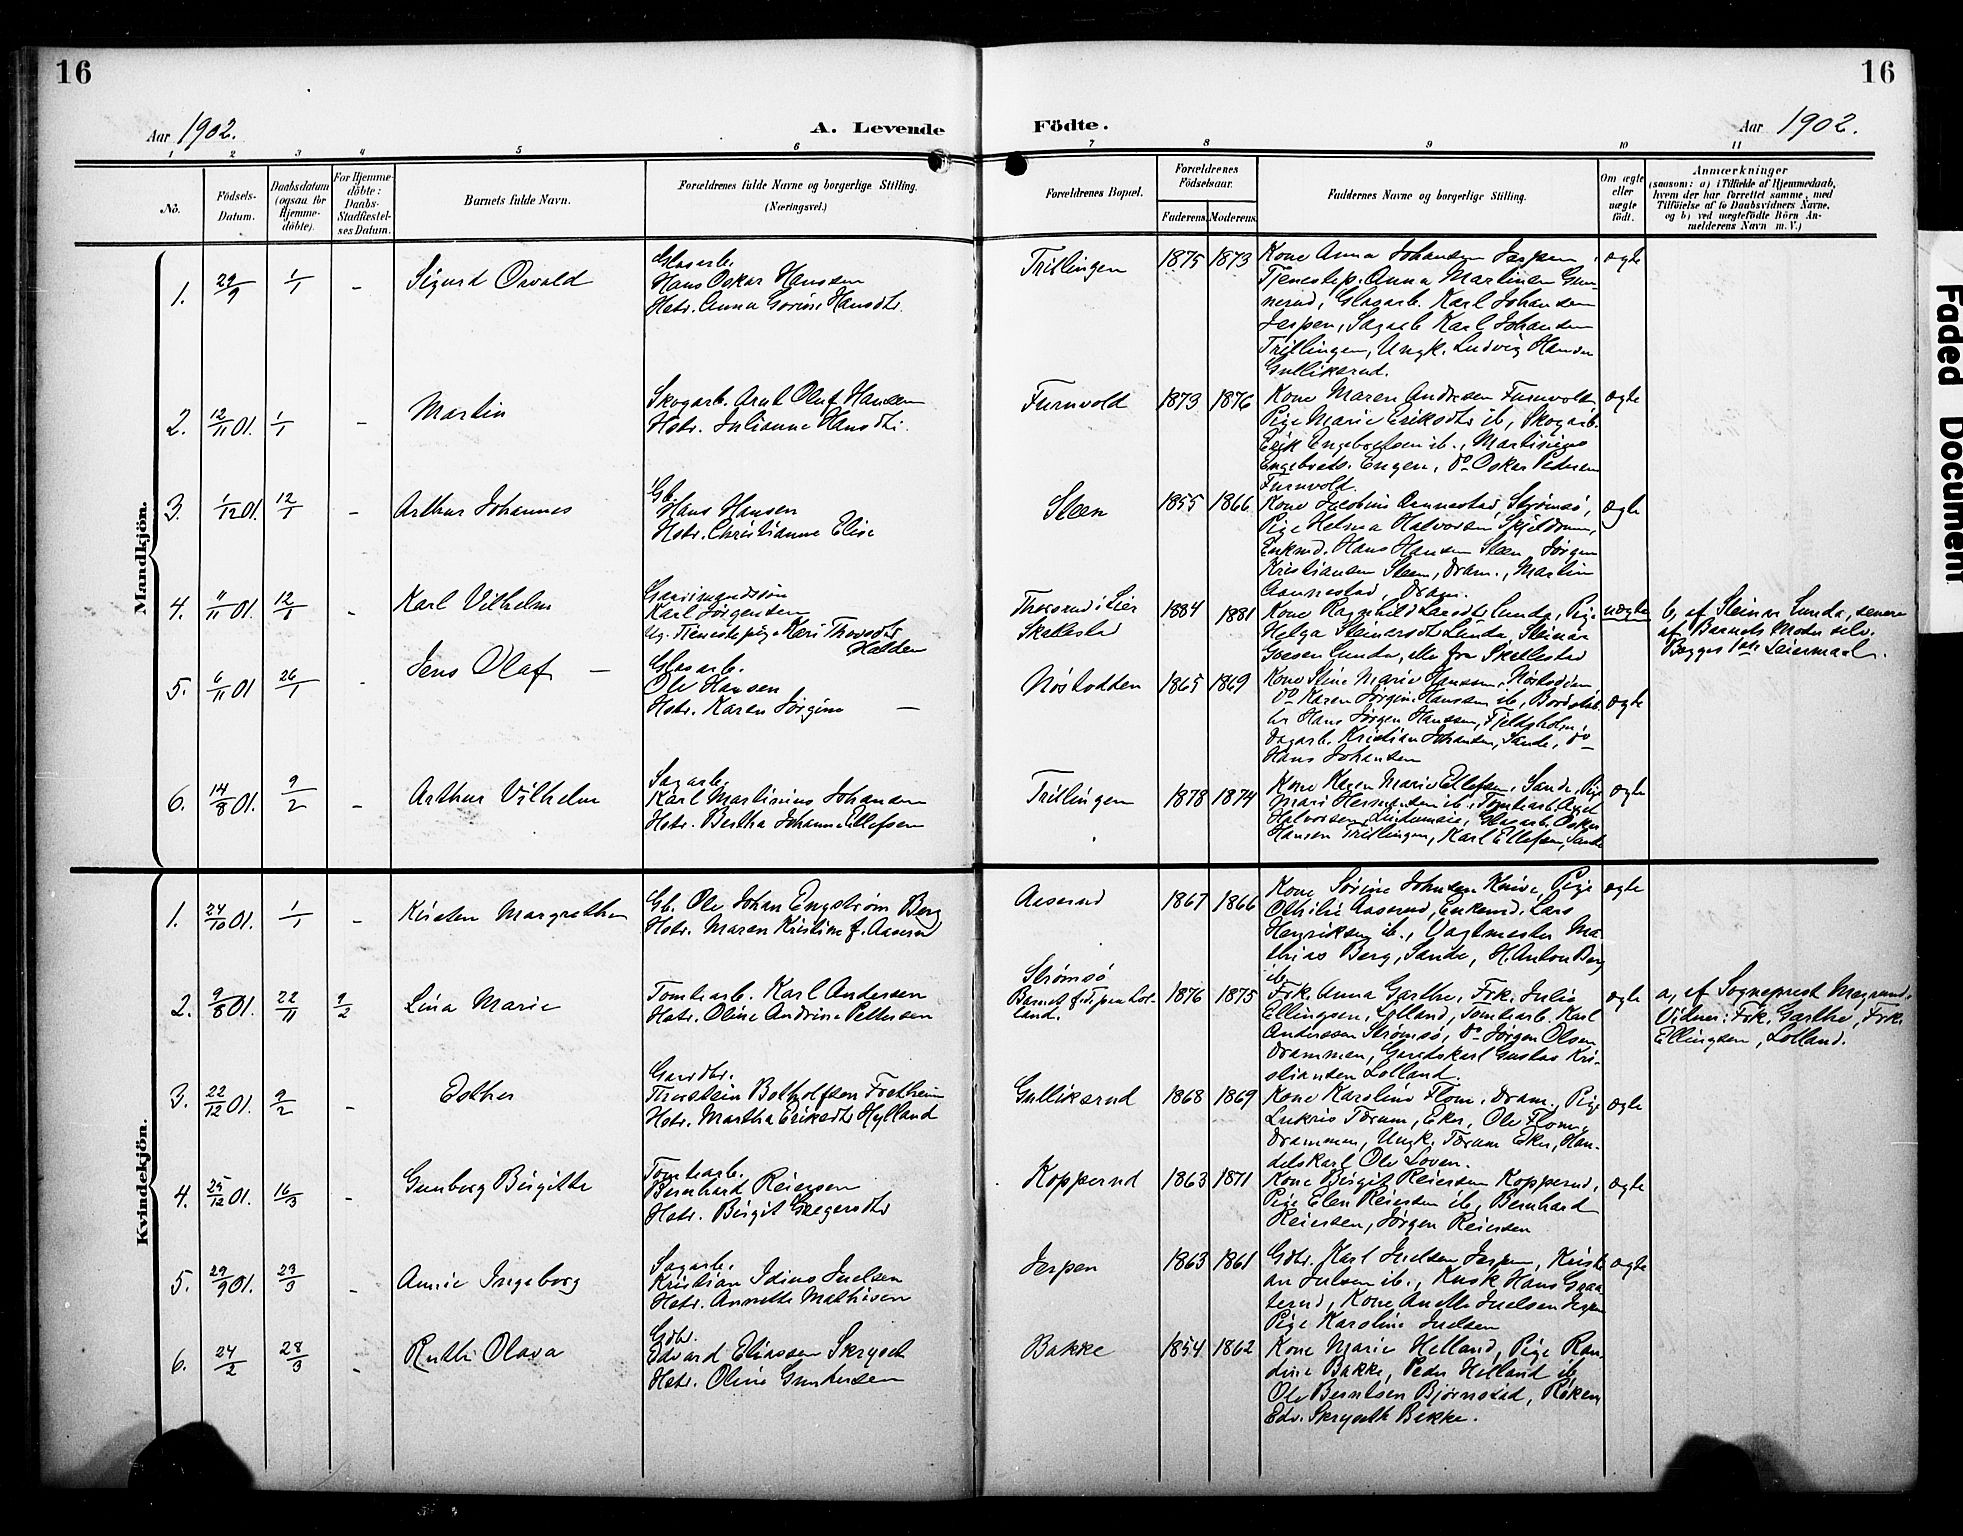 16
16
Aar 1902.
A. Levende
Födte.
Aar 1902.
1 2 3 4 5 6 7 8 9 10 11
No.
Födsels-
Datum.
Daabsdatum
(ogsaa for
Hjemme-
döbte).
For Hjemme-
döbte:
Daabs-
Stadfæstel-
ses Datum.
Barnets fulde Navn.
Forældrenes fulde Navne og borgerlige Stilling.
(Næringsvei.)
Forældrenes Bopæl.
Forældrenes
Födselsaar.
Faderens. Moderens.
Faddernes Navne og borgerlige Stilling.
Om ægte
eller
uægte
födt.
Anmærkninger
(saasom: a) i Tilfælde af Hjemmedaab,
hvem der har forrettet samme, med
Tilföielse af to Daabsvidners Navne,
og b) ved uægtefödte Börn An-
melderens Navn m. V.)
Mandkjön.
1. 29/9 1/1 - Sigurd Osvald
Glasarb.
Hans Oskar Hansen
Hstr. Anna Hansdtr.
Trillingen 1875 1873
Kone Anna Johansen Jerpen,
Tjenestep. Anna Martinsen Gun-
nerud, Glasarb. Karl Johansen
Jerpen, Sagarb. Karl Johansen
Trillingen, Ungk. Ludvig Hansen
Gulliksrud.
ægte
2. 12/11 01. 1/1 - Martin
Skogarb. Arnt Oluf Hansen
Hstr. Julianne Hansdtr.
Furuvold 1873 1876
Kone Maren Andersen Furuvold
Pige Marie Eriksdtr ib, Skogarb.
Erik Engebretsen ib., Martinius
Engebrets. Engen, do Oskar Pedersen
Furuvold.
ægte
3. 1/12 01. 12/1 - Arthur Johannes
Gb.
Hans Hansen
Hstr. Christianne Elise
Steen 1855 1866
Kone Jacobine Aannestad, Strømsø,
Pige Helma Halvorsen Skjeldrum,
Enkmd. Hans Hansen Steen, Jørgen
Kristiansen Steen, Dram., Martin
Aannestad, Dram.
ægte
4. 11/11 01. 12/1 - Karl Vilhelm
Gaardmandssøn
Karl Jørgensen
Ug. Tjenestepige Kari Thovsdtr
Halden
Thorsrud i Lier
Skallestad
1884 1881
Kone Ragnhild Larsdtr Lunde, Pige
Helga Steinersdtr Lunde, Steinar
Lunde, alle fra Skallestad
uægte
b, af Steinar Lunda, senere
af Barnets Moder selv.
Begges 1ste Leiermaal.
5. 6/11 01 26/1 - Jens Olaf -
Glasarb.
Ole Hansen
Hstr. Karen Jørgine -
Nøstodden 1865 1869
Kone Stine Marie Hansen, Nøstodden
do Karen Jørgine Hanssen ib,
Hans Jørgen Hanssen, Fjeldsholm,
Dagarb. Kristian Johansen, Sande, do
Hans Johansen
ægte
6. 14/8 01. 9/2 - Arthur Vilhelm
Sagarb.
Karl Martinius Johansen
Hstr. Bertha Johanne Ellefsen
Trillingen 1878 1874
Kone Karen Marie Ellefsen, Sande, Pige
Mari Hermansen ib., Tomtearb. Axel
Halvorsen, Glasarb. Oskar
Hansen Trillingen, Karl Ellefsen, Sande
ægte
Kvindekjön.
1. 24/10 01. 1/1 - Kirsten Margrethe
Gb. Ole Johan Engstrøm Berg
Hstr. Maren Kristine f. Aaserud
Aaserud 1867 1866
Kone Sørine Johnsen Knive, Pige
Othilie Aaserud, Enkemd. Lars
Henriksen ib., Vagtmester Ma-
thias Berg, Sande, H. Anton Berg
ib.
ægte
2. 9/8 01. 22/11 9/2 Lina Marie
Tomtearb. Karl Andersen
Hstr. Oline Andrine Pettersen
Strømsø
Barnet f. i Lol-
land.
1876 1875
Frk. Anna Garthe, Frk. Julie
Ellingsen, Lolland, Tomtearb. Karl
Anderssen Strømsø, do Jørgen Olsen
Drammen, Gaardskarl Gustav Kri-
stiansen Lolland.
ægte
a, af Sogneprest
Vidner: Frk. Garthe, Frk.
Ellingsen, Lolland.
3. 22/12 01. 9/2 - Esther
Gaardbr.
Thorstein Botholfsen Fretheim
Hstr. Martha Eriksdtr Hylland
Gulliksrud 1868 1869
Kone Karoline Flom, Dram., Pige
Lukris Tørum, Eker, Ole Flom,
Drammen, Ungk. Tørum Eker, Han-
delskarl Ole Loven.
ægte
4. 25/12 01. 16/3 - Gunborg Birgitte
Tomtearb.
Bernhard Reiersen
Hstr. Birgit Gregersdtr
Kopperud 1863 1871
Kone Birgit Reiersen Kopperud,
Pige Elen Reiersen ib, Bernhard
Reiersen, Jørgen Reiersen
ægte
5. 29/9 01. 23/3 - Annie Ingeborg
Sagarb.
Kristian Idius Juelsen
Hstr. Annette Mathisen
Jerpen 1863 1861
Gdbr. Karl Juelsen Jerpen, Kristi-
an Julsen ib., Kusk Hans Graa-
terud, Kone Anette Juelsen Jerpen
Pige Karoline Juelsen
ægte
6. 24/2 28/3 - Ruth Olava
Gdbr.
Edvard Eliassen Skryseth
Hstr. Oline Gundersen
Bakke 1854 1862
Kone Marie Helland, Pige Ran-
dine Bakke, Peder Helland ib
Ole Berntsen Bjørnstad, Røken
Edv. Skryseth Bakke.
Faded Document